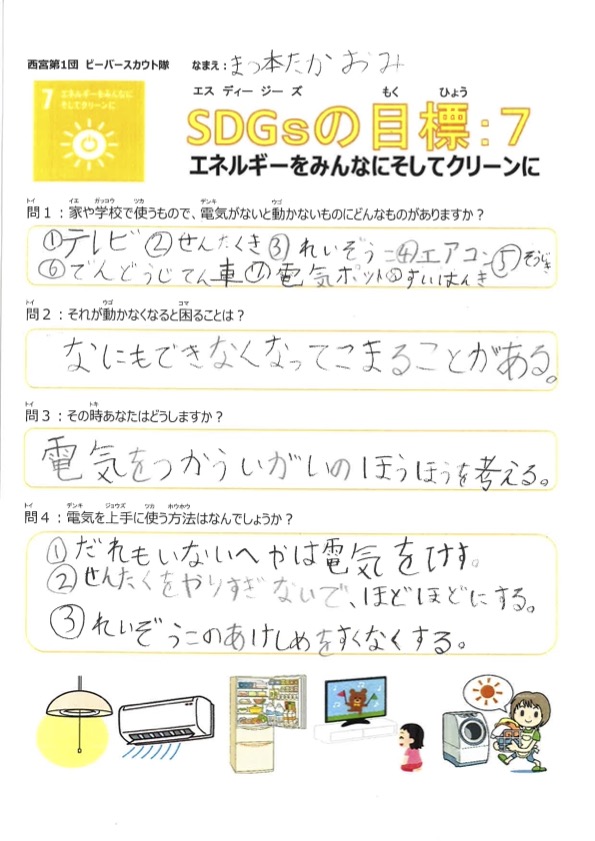 西宮第1団 ビーバースカウト隊 なまえ：まつ本たかおみ
7 エネルギーをみんなに
そしてクリーンに
エス ディー ジー ズ もく ひょう
SDGsの目標：7
エネルギーをみんなにそしてクリーンに
トイ イエ ガッコウ ツカ デンキ ウゴ
問1：家や学校で使うもので、電気がないと動かないものにどんなものがありますか？
①テレビ②せんたくき③れいぞうこ④エアコン⑤そうじき
⑥でんどうじてん車⑦電気ポット⑧すいはんき
トイ ウゴ コマ
問2：それが動かなくなると困ることは？
なにもできなくなってこまることがある。
トイ トキ
問3：その時あなたはどうしますか？
電気をつかういがいのほうほうを考える。
トイ デンキ ジョウズ ツカ ホウホウ
問4：電気を上手に使う方法はなんでしょうか？
①だれもいないへやは電気をけす。
②せんたくをやりすぎないで、ほどほどにする。
③れいぞうこのあけしめをすくなくする。